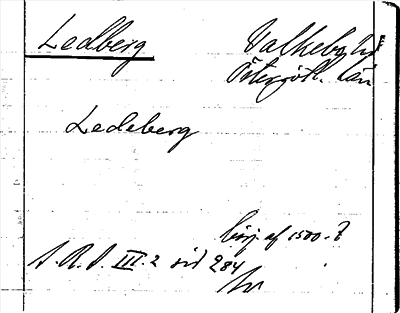 Ledberg
Valkebo hd
Östergötl. län
Ledeberg
börj. af 1500-t
S.R.P. III. 2 sid 284